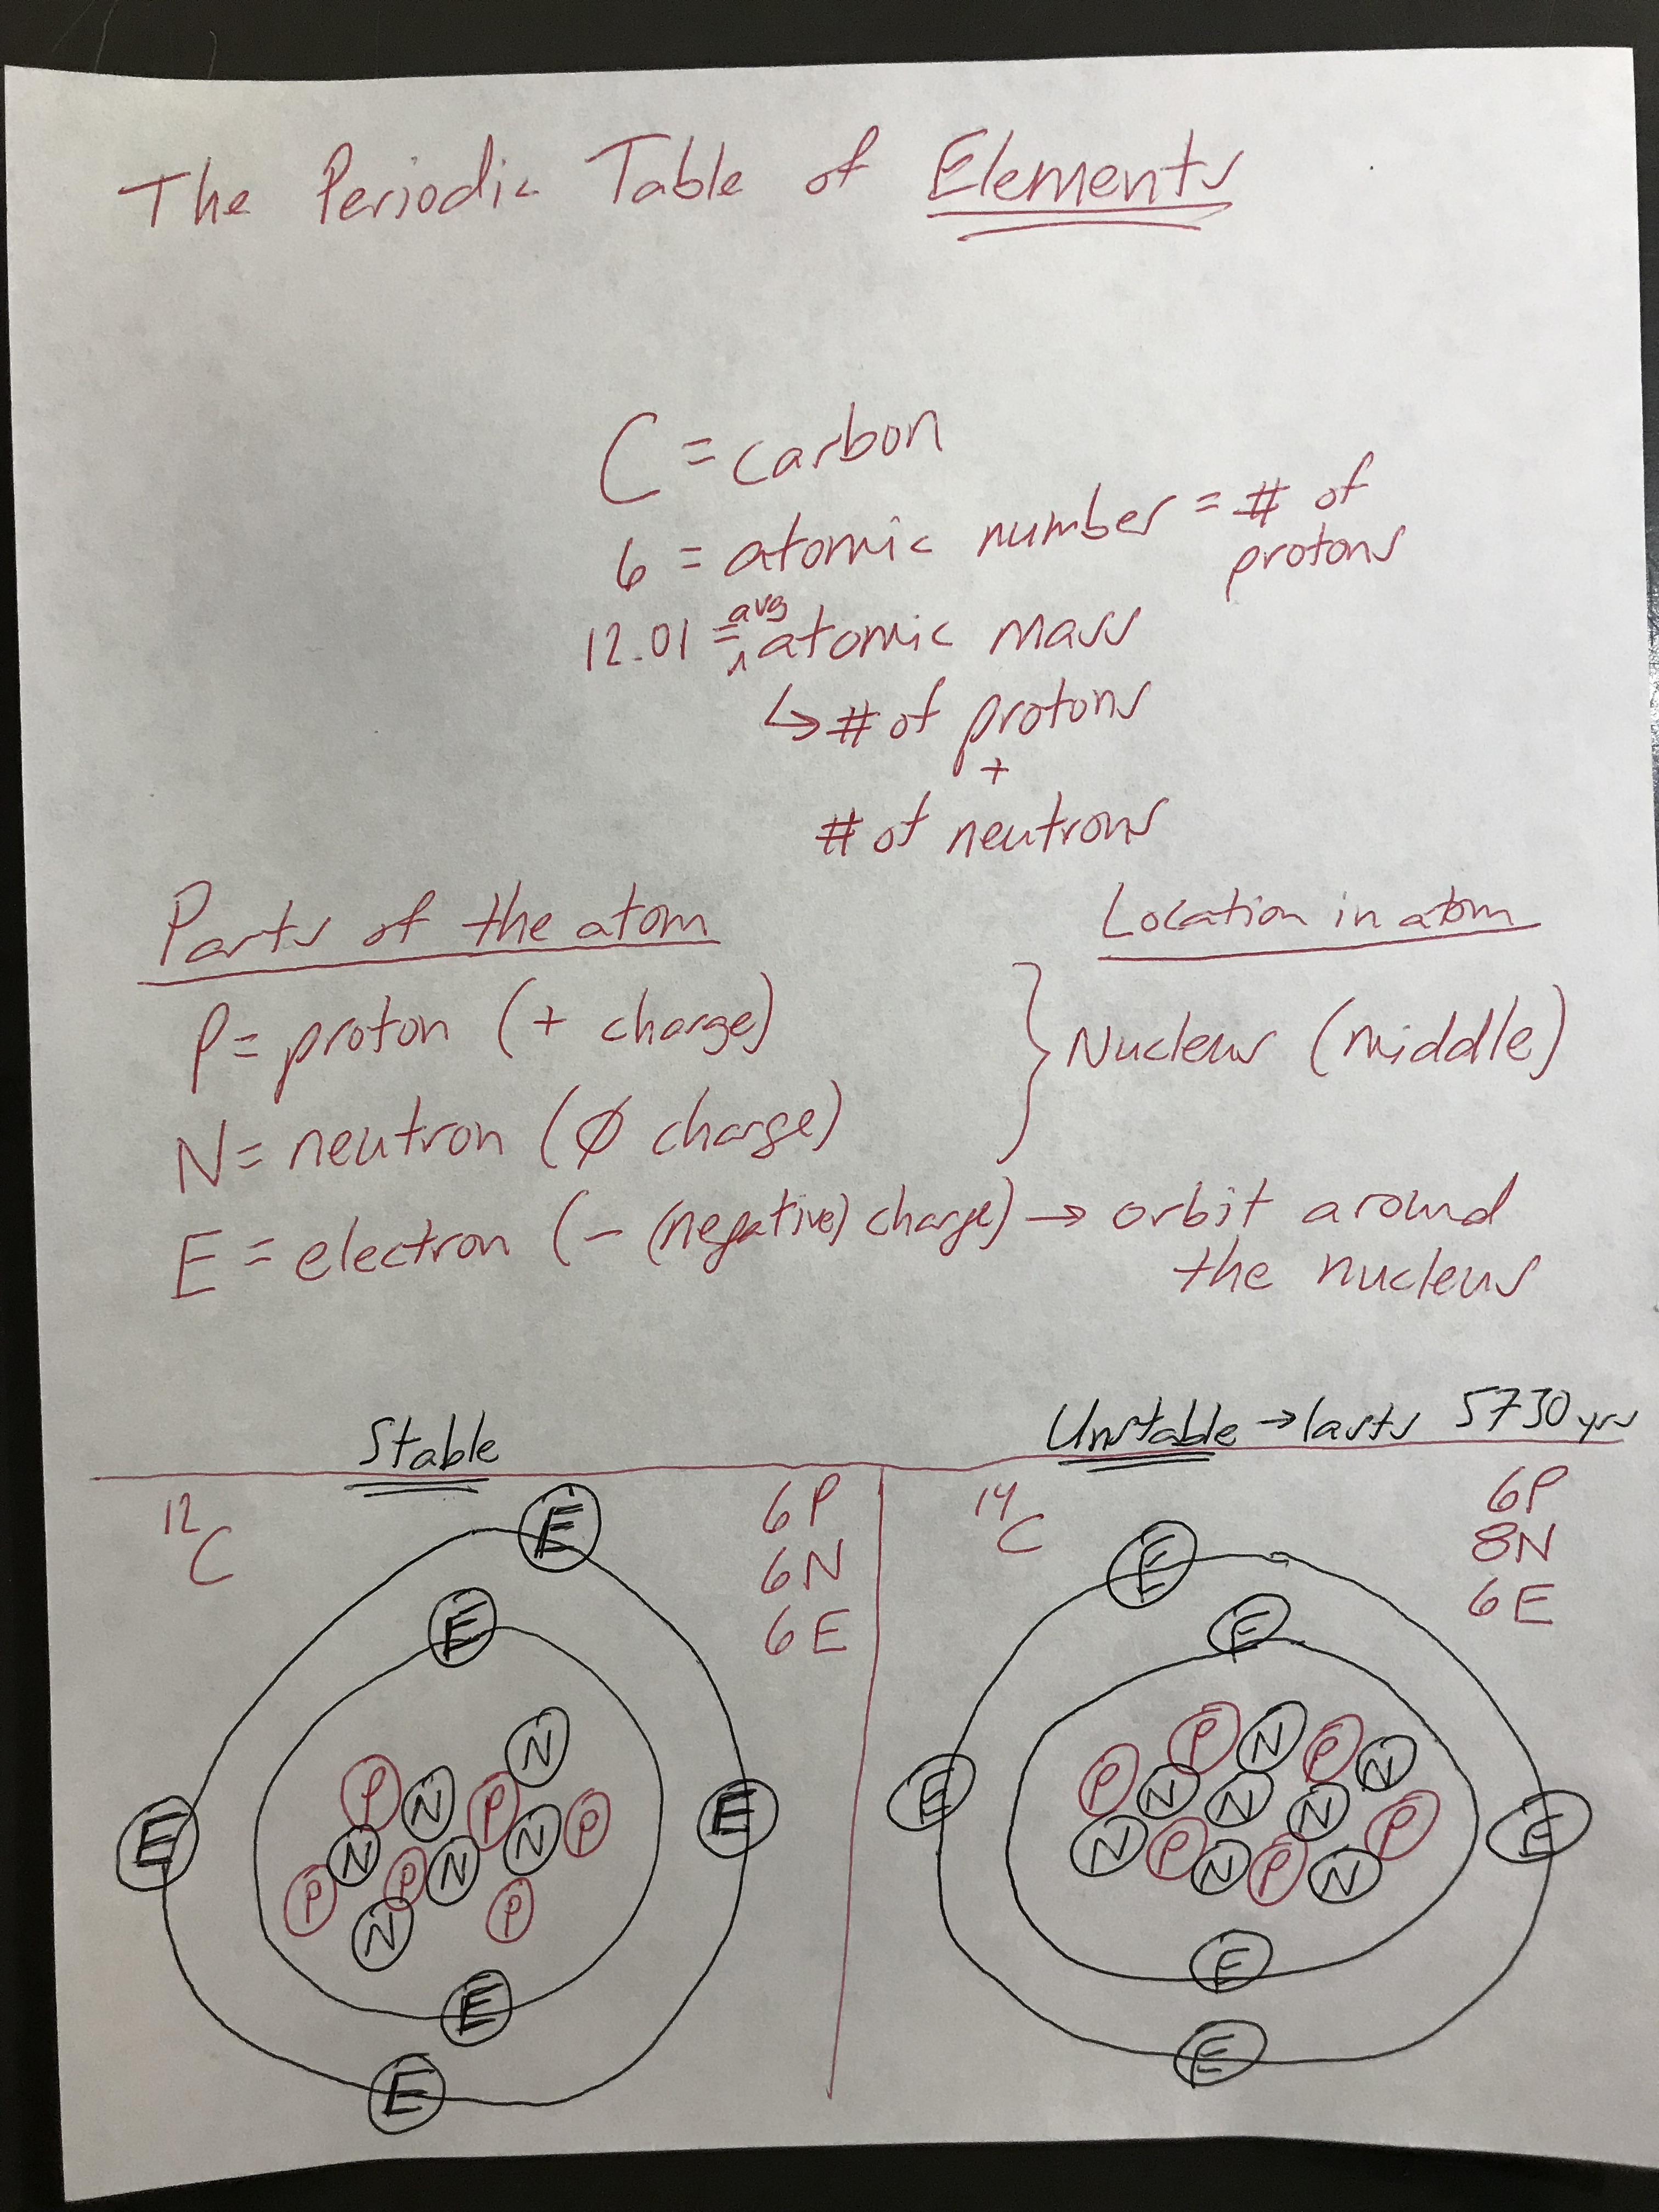 The Periodic Table of Elements
C = carbon
6 = atomic number = # of
protons
avg
12.01 = atomic mass
↳ # of protons
+
# of neutrons
Parts of the atom
Location in atom
P = proton (+ charge)
} Nucleus (middle)
N = neutron (Ø charge)
E = electron (- (negative) charge) → orbit around
the nucleus
Stable
Unstable → lasts 5730 yrs
12
C
6P
6N
6E
E
E
N
P
N
P
N
P
E
E
N
P
N
P
N
P
E
E
14
C
6P
8N
6E
E
E
P
N
P
N
P
N
N
N
P
E
E
N
P
N
P
N
E
E